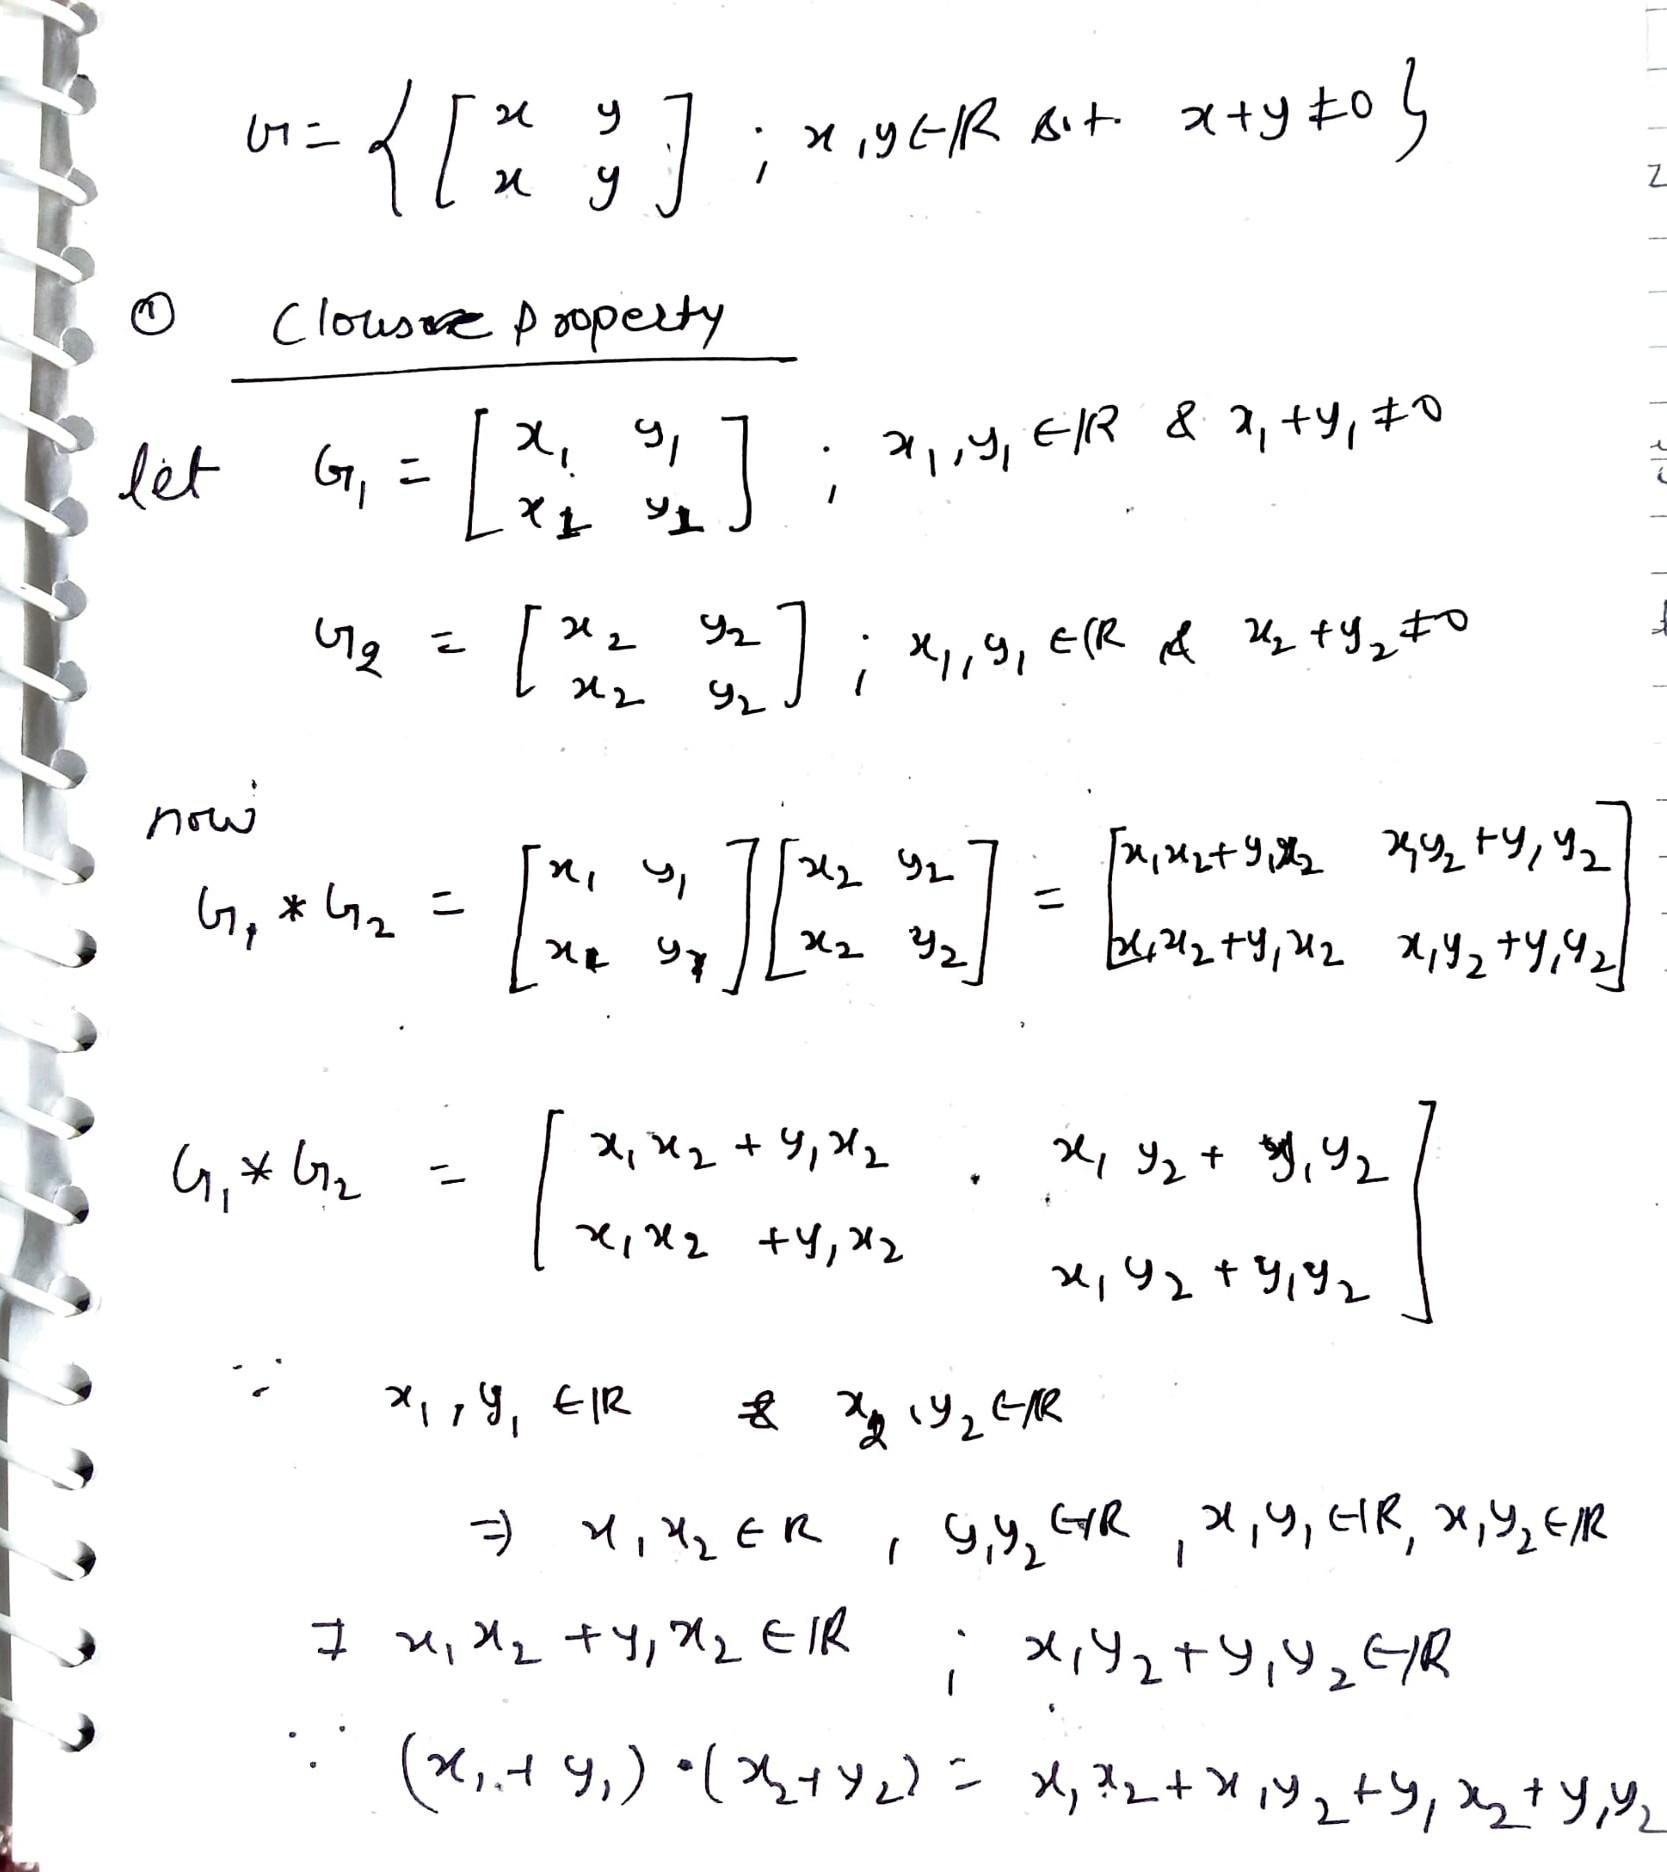 G = { [ x y ; x y ] ; x, y ∈ ℝ s.t. x + y ≠ 0 }
① Clousre property
let G₁ = [ x₁ y₁ ; x₁ y₁ ] ; x₁, y₁ ∈ ℝ & x₁ + y₁ ≠ 0
G₂ = [ x₂ y₂ ; x₂ y₂ ] ; x₁, y₁ ∈ ℝ & x₂ + y₂ ≠ 0
now
G₁ * G₂ = [ x₁ y₁ ; x₁ y₁ ] [ x₂ y₂ ; x₂ y₂ ] = [ x₁x₂ + y₁x₂ x₁y₂ + y₁y₂ ; x₁x₂ + y₁x₂ x₁y₂ + y₁y₂ ]
G₁ * G₂ = [ x₁x₂ + y₁x₂ x₁y₂ + y₁y₂ ; x₁x₂ + y₁x₂ x₁y₂ + y₁y₂ ]
∵ x₁, y₁ ∈ ℝ & x₂, y₂ ∈ ℝ
⇒ x₁x₂ ∈ R , y₁y₂ ∈ ℝ , x₁y₁ ∈ ℝ, x₁y₂ ∈ ℝ
⇒ x₁x₂ + y₁x₂ ∈ ℝ ; x₁y₂ + y₁y₂ ∈ ℝ
∵ (x₁ + y₁) · (x₂ + y₂) = x₁x₂ + x₁y₂ + y₁x₂ + y₁y₂